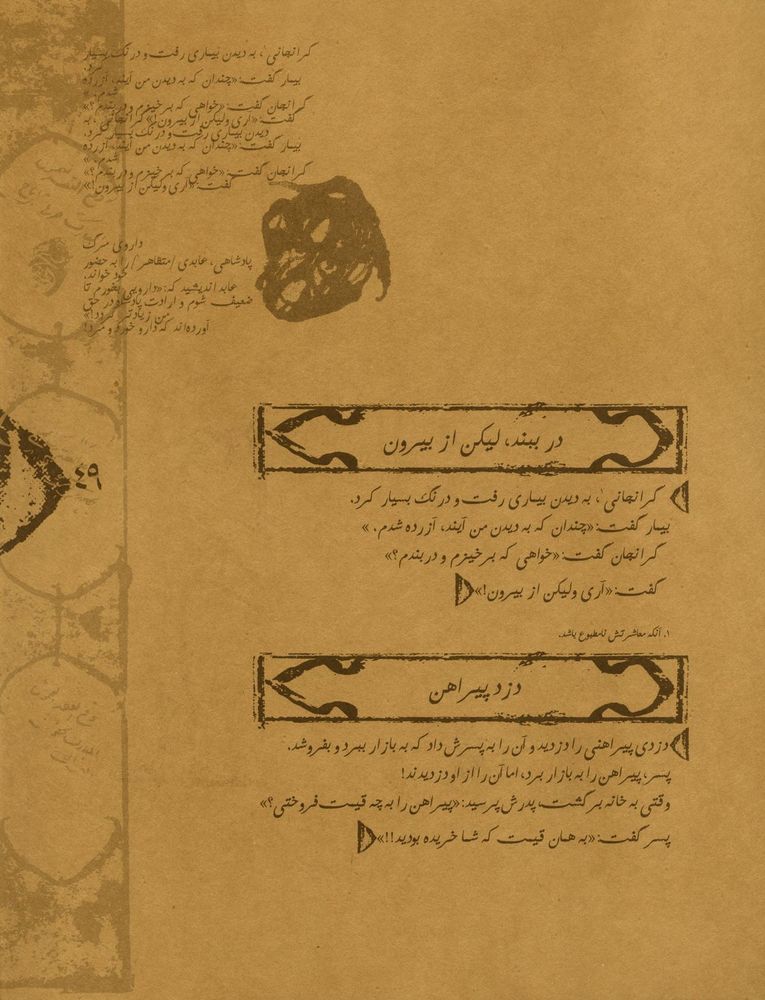 گرانجانی۱، به دیدن بیماری رفت و درنگ بسیار
کرد.
بیمار گفت: «چندان که به دیدن من آیند، آزرده
شدم.»
گرانجان گفت: «خواهی که برخیزم و در بندم؟»
گفت: «آری ولیکن از بیرون!» گرانجانی۱، به
دیدن بیماری رفت و درنگ بسیار کرد.
بیمار گفت: «چندان که به دیدن من آیند، آزرده
شدم.»
گرانجان گفت: «خواهی که برخیزم و در بندم؟»
گفت: «آری ولیکن از بیرون!»
داروی مرگ
پادشاهی، عابدی /متظاهر/ را به حضور
خود خواند.
عابد اندیشید که: «دارویی بخورم تا
ضعیف شوم و ارادت پادشاه در حق
من زیادتر گردد!»
آورده‌اند که دارو خورد و مُرد!
در ببند، لیکن از بیرون
گرانجانی۱، به دیدن بیماری رفت و درنگ بسیار کرد.
بیمار گفت: «چندان که به دیدن من آیند، آزرده شدم.»
گرانجان گفت: «خواهی که برخیزم و در بندم؟»
گفت: «آری ولیکن از بیرون!»
۱. آنکه معاشرتش نامطبوع باشد.
دزد پیراهن
دزدی پیراهنی را دزدید و آن را به پسرش داد که به بازار ببرد و بفروشد.
پسر، پیراهن را به بازار برد، اما آن را از او دزدیدند!
وقتی به خانه برگشت، پدرش پرسید: «پیراهن را به چه قیمت فروختی؟»
پسر گفت: «به همان قیمت که شما خریده بودید!!»
۴۹